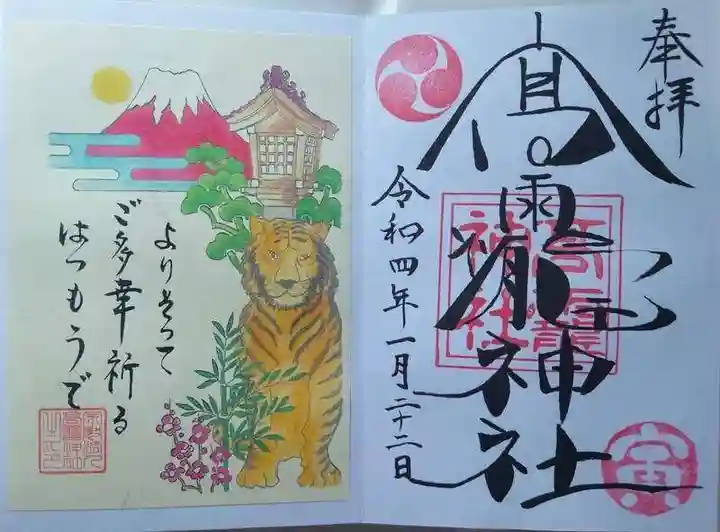 奉拝
高龗神社
令和四年一月二十二日
寅
よりそって
ご多幸祈る
はつもうで